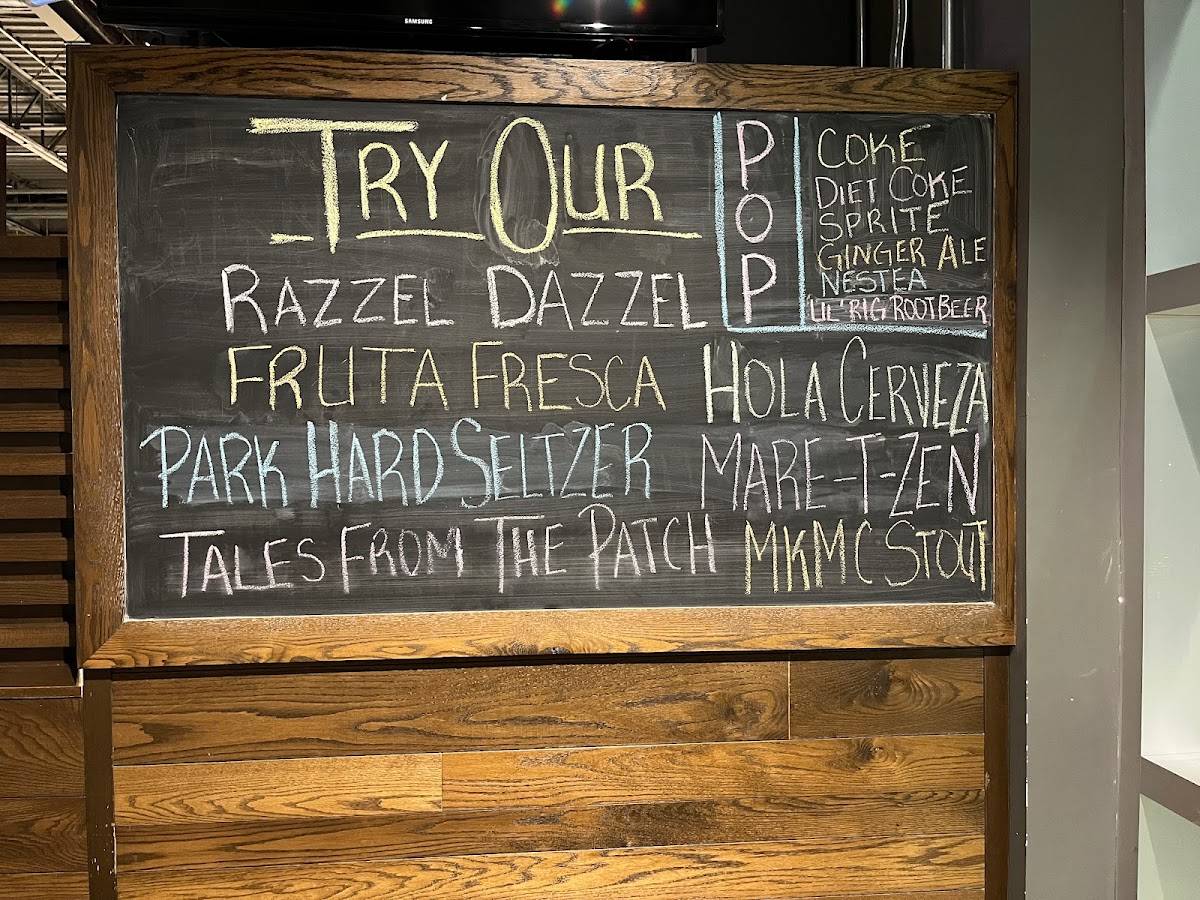 SAMSUNG
TRY OUR
RAZZEL DAZZEL
FRUTA FRESCA
PARK HARD SELTZER
TALES FROM THE PATCH
POP
COKE
DIET COKE
SPRITE
GINGER ALE
NESTEA
LIL' RIG ROOT BEER
HOLA CERVEZA
MARE-T-ZEN
MKMC STOUT